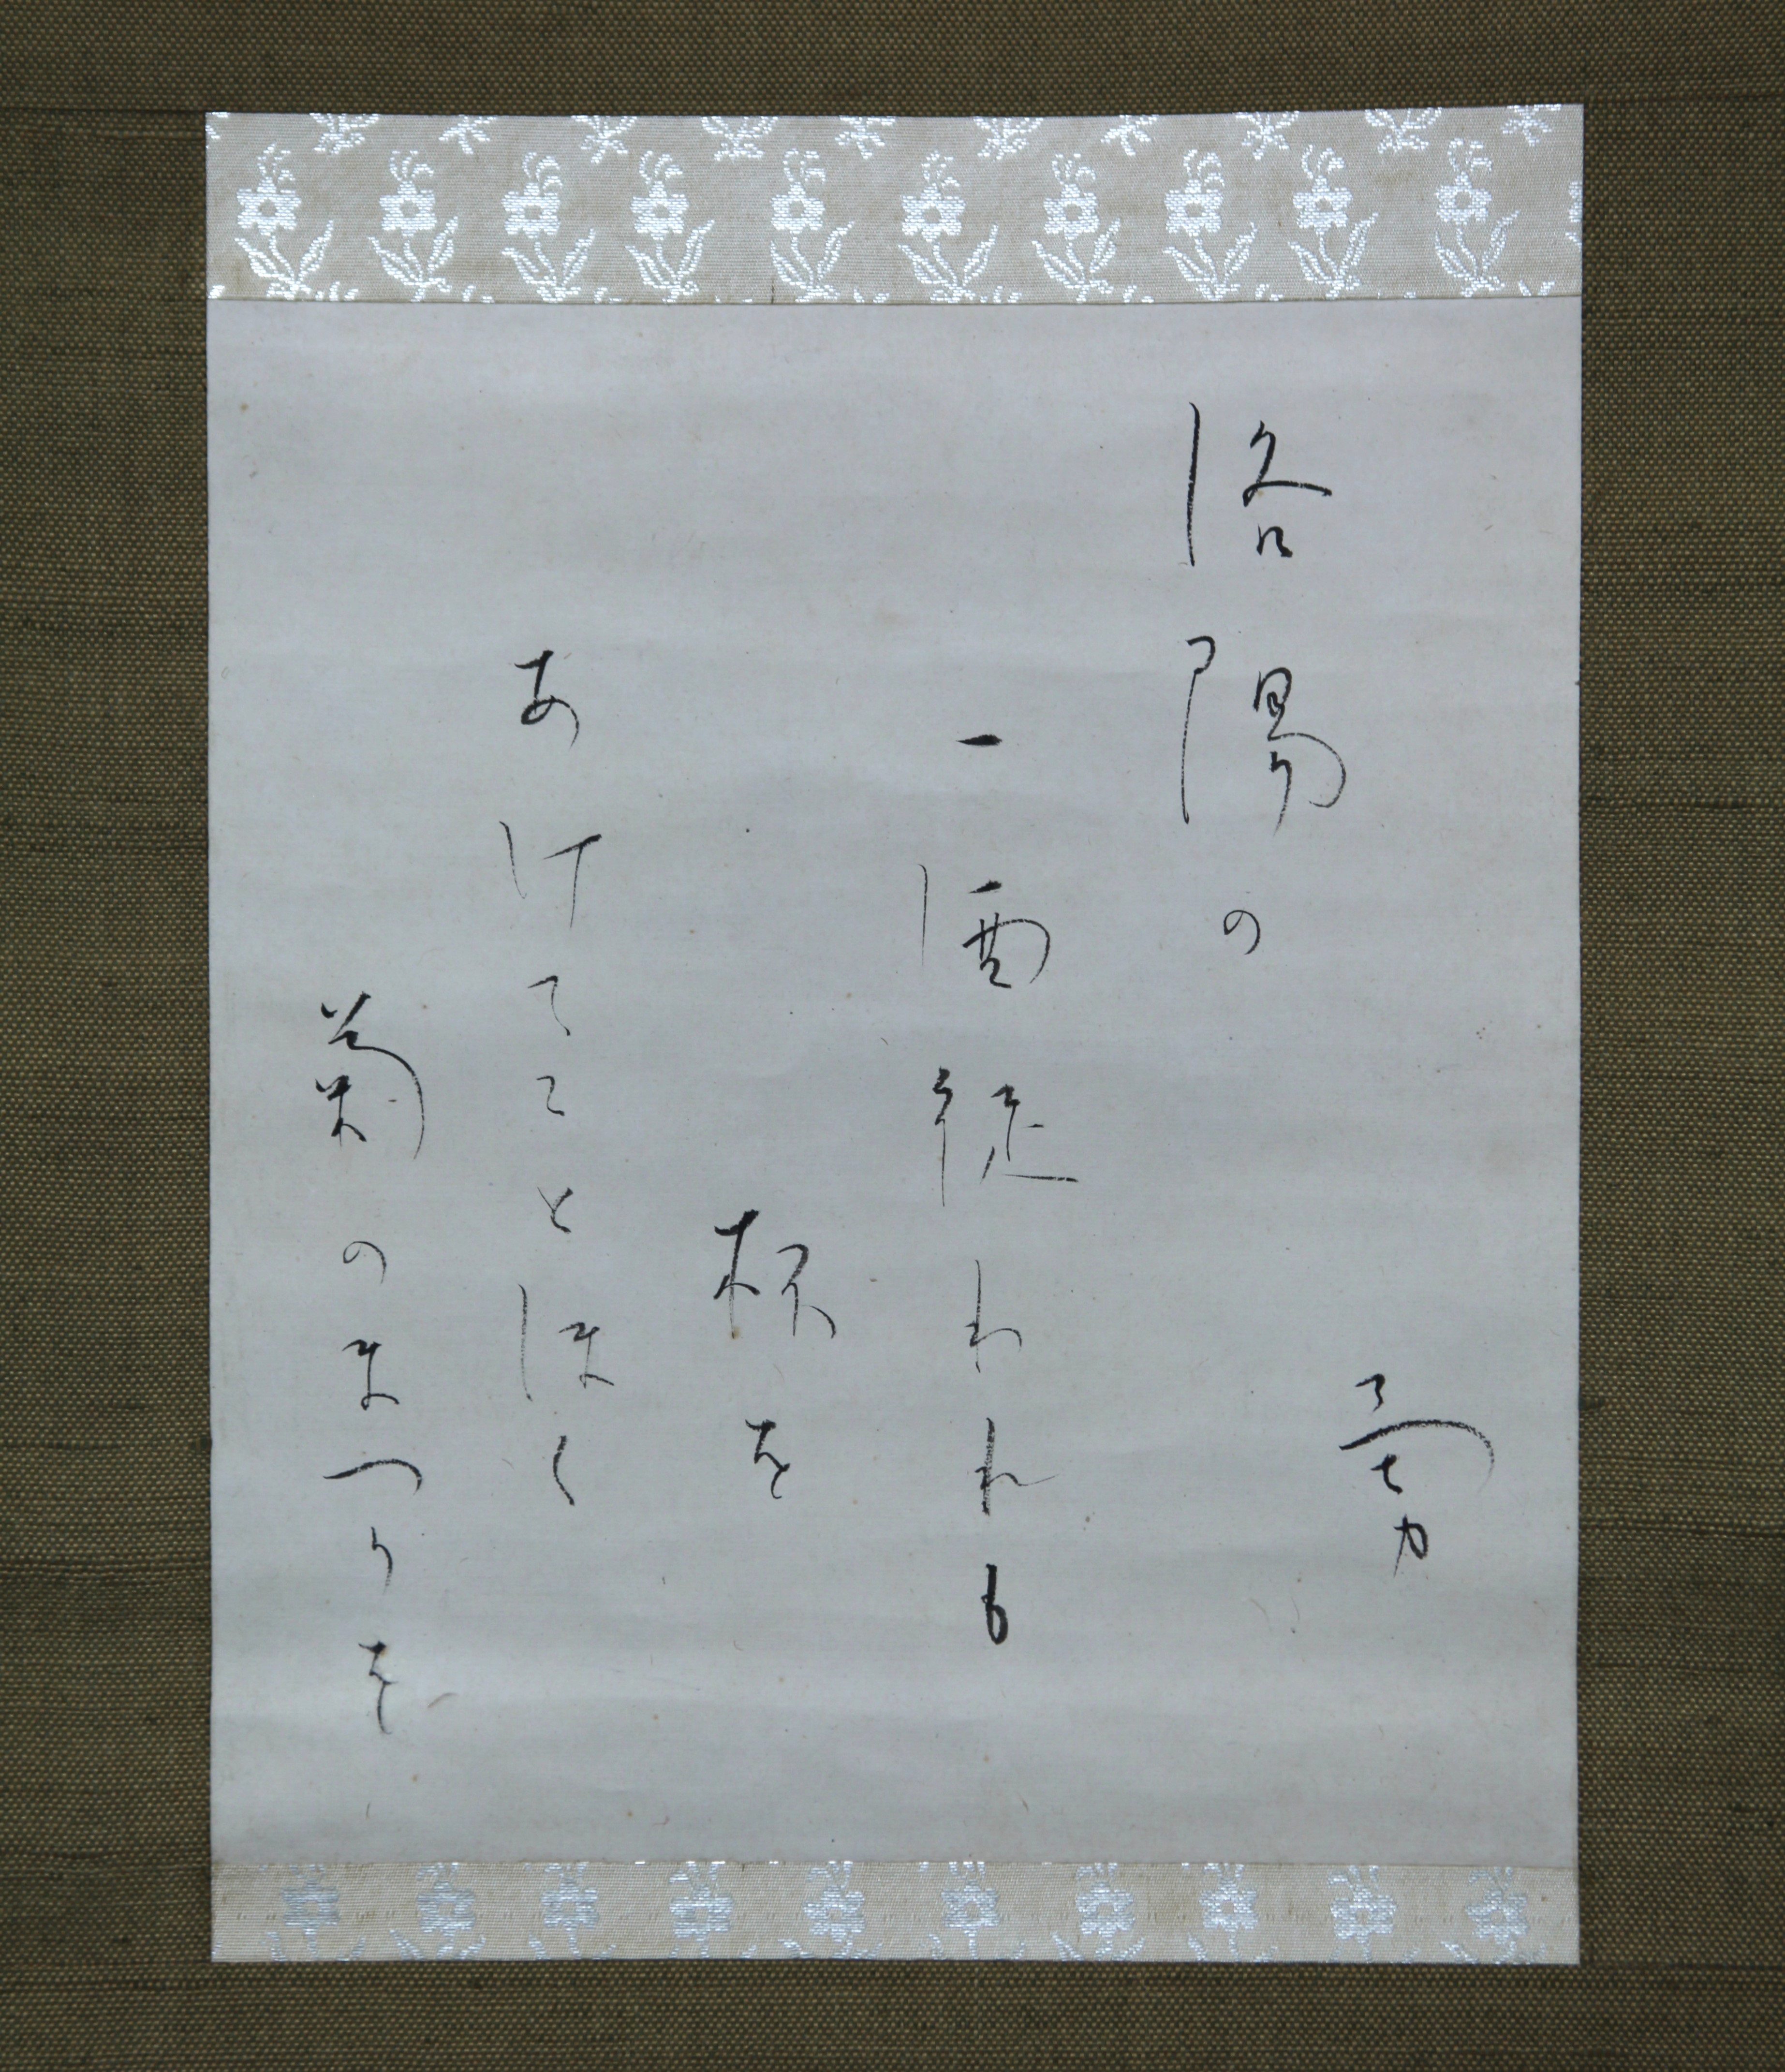 勇
洛陽の
一酒徒われも
杯を
あけてことほく
菊のまつりを